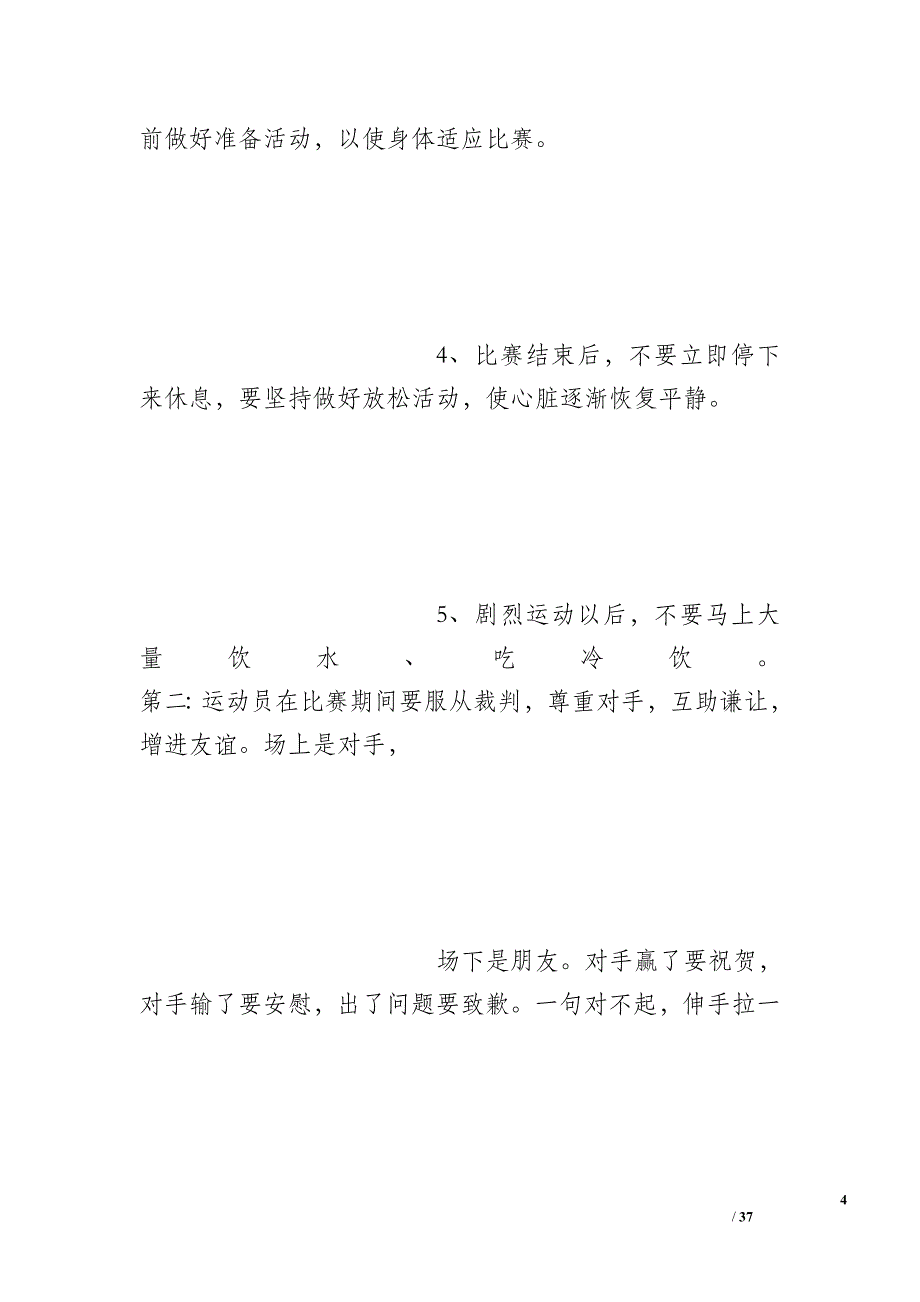 前做好准备活动，以使身体适应比赛。
4、比赛结束后，不要立即停下
来休息，要坚持做好放松活动，使心脏逐渐恢复平静。
5、剧烈运动以后，不要马上大
量饮水、吃冷饮。
第二：运动员在比赛期间要服从裁判，尊重对手，互助谦让，
增进友谊。场上是对手，
场下是朋友。对手赢了要祝贺，
对手输了要安慰，出了问题要致歉。一句对不起，伸手拉一
4
/ 37